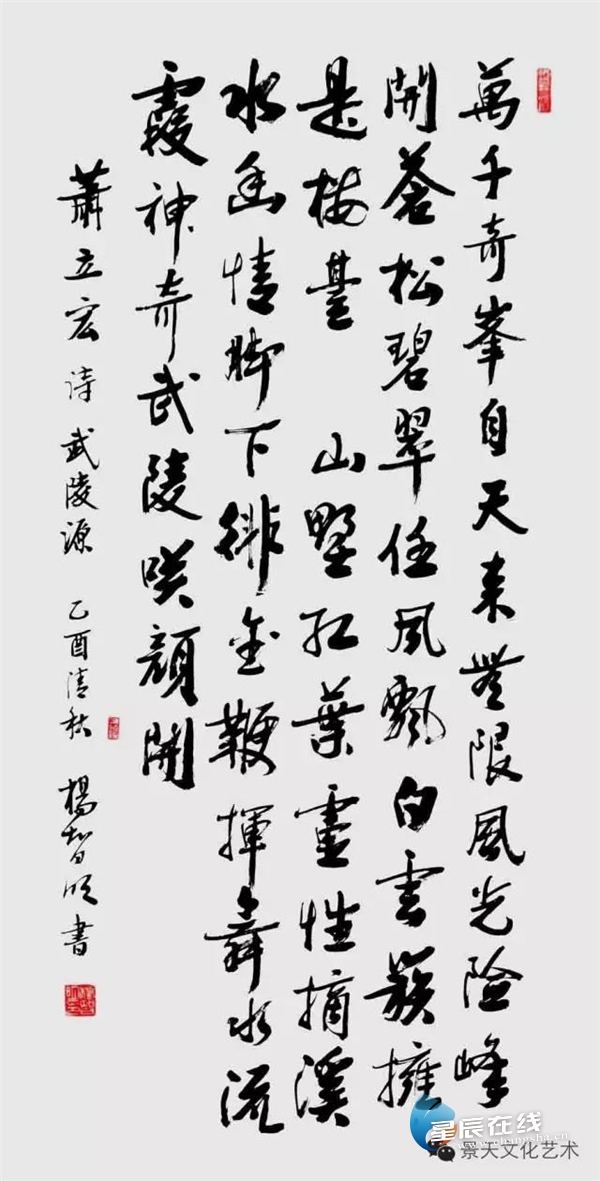 萬千奇峯自天来無限風光险峰
開蒼松碧翠任風飄白雲簇擁
是樓臺 山红葉靈性摘溪
水幽情脚下徘金鞭揮舞水流
霞神奇武陵咲颜開
蕭立宏诗武陵源 乙酉清秋 楊智書
星辰在线
景天文化艺术